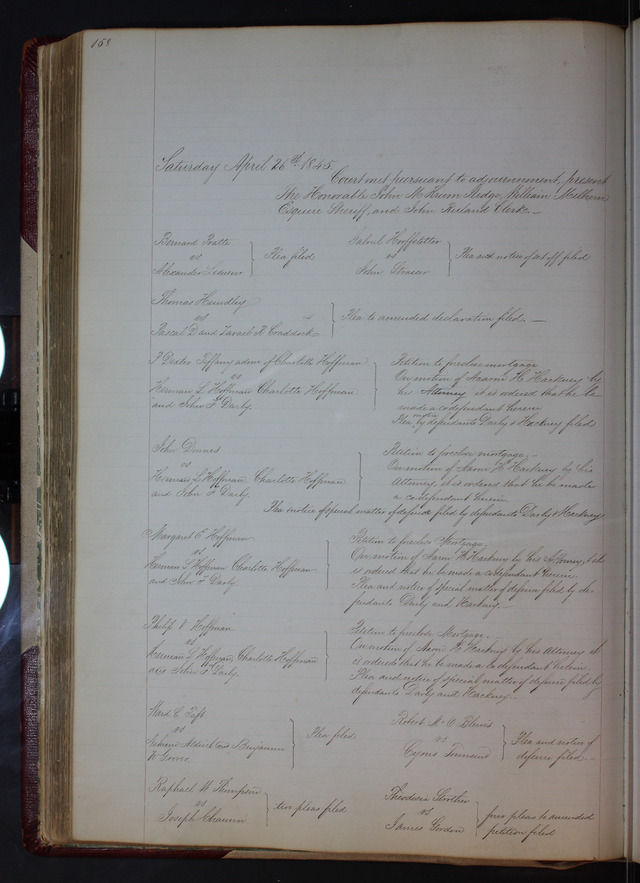 168
Saturday April 26th 1845.
Court met pursuant to adjournment, present
The Honorable John M. Krum Judge, William Milburn
Esquire Sheriff, and John Ruland Clerk.
Bernard Pratte
vs
Alexander
Plea filed
Gabriel
vs
John
Plea and notice of set off filed
Thomas Hundley
vs
Pascal D and R Craddock
Plea to amended declaration filed.
P Dexter Tiffany admr of Charlotte Hoffman
vs
Herman L Hoffman Charlotte Hoffman
and John F Darby
Petition to foreclose mortgage
On motion of Aaron H Hackney by
his Attorney it is ordered that he be
made a codefendant herein
Plea by defendants Darby & Hackney filed
John
vs
Herman L Hoffman Charlotte Hoffman
and John F Darby
Petition to foreclose mortgage.
On motion of Aaron H Hackney by his
Attorney, it is ordered that he be made
a codefendant herein
Plea & notice of special matter of defence filed by defendants Darby & Hackney
Margaret E Hoffman
vs
Herman L Hoffman Charlotte Hoffman
and John F Darby
Petition to foreclose Mortgage.
On motion of Aaron H Hackney by his Attorney, it
is ordered that he be made a codefendant herein
Plea and notice of special matter of defence filed by de-
fendants Darby and Hackney.
Philip Hoffman
vs
Herman L Hoffman, Charlotte Hoffman
and John F Darby.
Petition to foreclose Mortgage.
On motion of Aaron H Hackney by his Attorney it
is ordered that he be made a co defendant herein
Plea and notice of special matter of defence filed by
defendants Darby and Hackney.
Ward C Taft
vs
Aldrich and Benjamin
W Grover
Plea filed
Robert M O Blenis
vs
Cyrus Townsend
Plea and notice of
defence filed
Raphael W Thompson
vs
Joseph
two pleas filed
Theodosia Strother
vs
James Gordon
four pleas to amended
petition filed